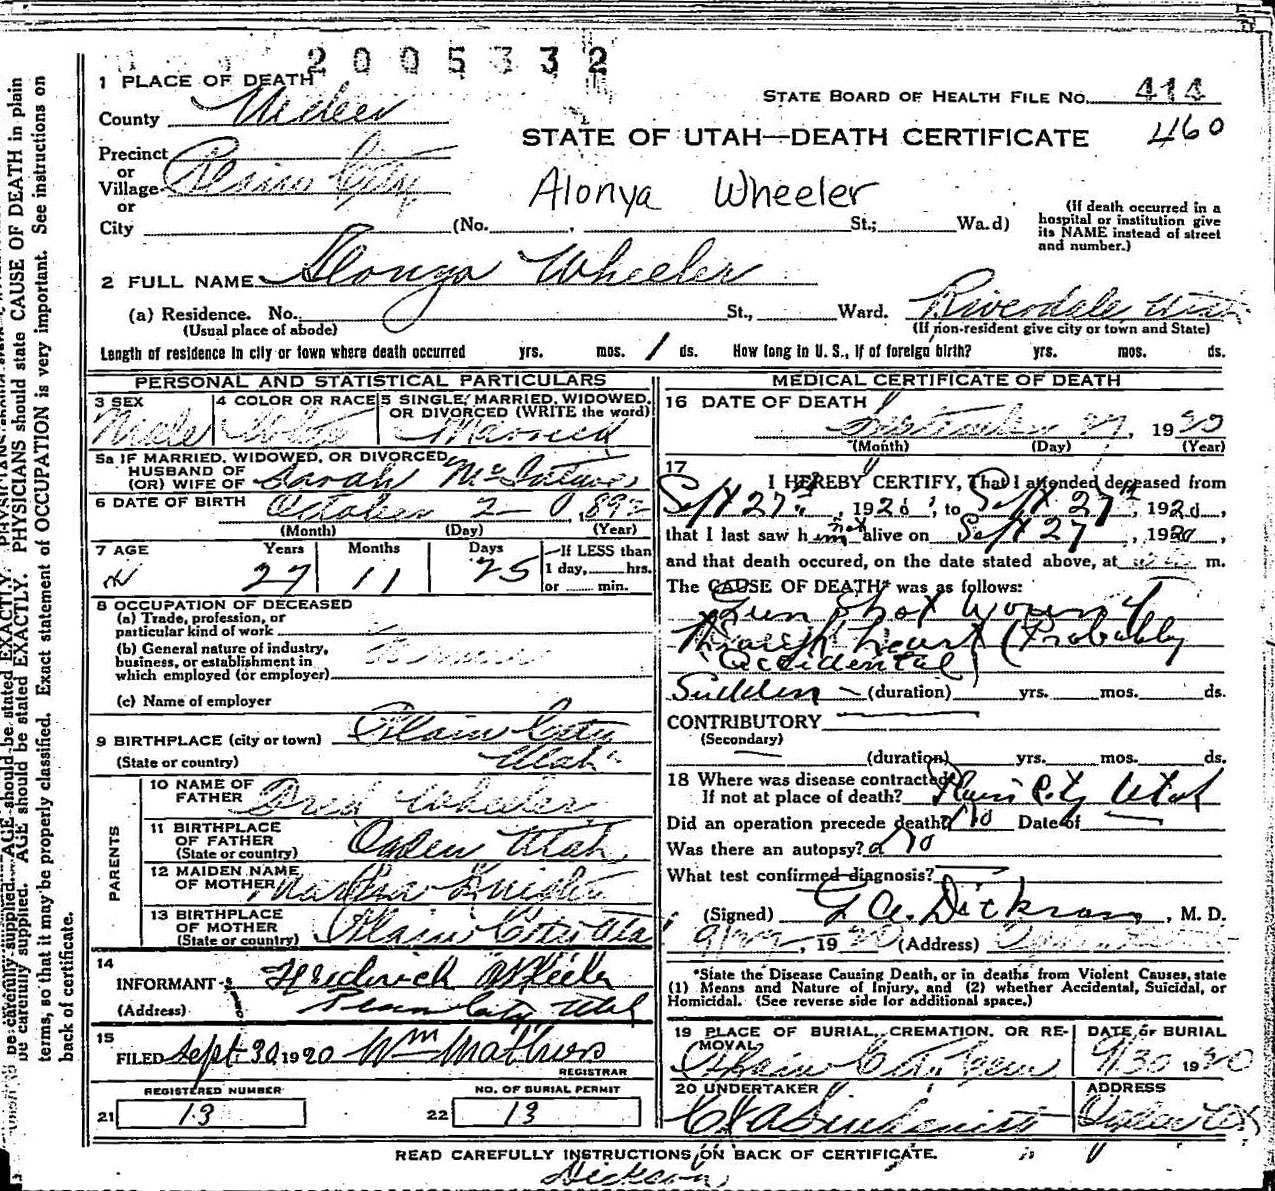 2005332
1 PLACE OF DEATH
STATE BOARD OF HEALTH FILE No. 414
County Weber
460
STATE OF UTAH—DEATH CERTIFICATE
Precinct
or
Village Plain City
or
Alonya Wheeler
City (No. , St.; Wa.d)
(If death occurred in a
hospital or institution give
its NAME instead of street
and number.)
2 FULL NAME Alonya Wheeler
(a) Residence. No. St., Ward. Riverdale Utah
(Usual place of abode) (If non-resident give city or town and State)
Length of residence in city or town where death occurred yrs. mos. 1 ds. How long in U. S., if of foreign birth? yrs. mos. ds.
PERSONAL AND STATISTICAL PARTICULARS
3 SEX 4 COLOR OR RACE 5 SINGLE, MARRIED, WIDOWED,
OR DIVORCED (WRITE the word)
Male White Married
5a IF MARRIED, WIDOWED, OR DIVORCED
HUSBAND OF
(OR) WIFE OF Sarah
6 DATE OF BIRTH October 2
(Month) (Day) (Year)
7 AGE Years Months Days If LESS than
1 day, hrs.
or min.
27 11 25
8 OCCUPATION OF DECEASED
(a) Trade, profession, or
particular kind of work
(b) General nature of industry,
business, or establishment in
which employed (or employer)
(c) Name of employer
9 BIRTHPLACE (city or town) Plain City
(State or country) Utah
PARENTS
10 NAME OF
FATHER Wheeler
11 BIRTHPLACE
OF FATHER
(State or country) Ogden Utah
12 MAIDEN NAME
OF MOTHER
13 BIRTHPLACE
OF MOTHER
(State or country) Plain City Uta
14
INFORMANT Frederick Wheeler
(Address) Plain City Utah
15
FILED Sept 30 1920 Wm
REGISTRAR
REGISTERED NUMBER NO. OF BURIAL PERMIT
21 13 22 13
MEDICAL CERTIFICATE OF DEATH
16 DATE OF DEATH
September 27, 1920
(Month) (Day) (Year)
17
I HEREBY CERTIFY, That I attended deceased from
Sept 27th, 1920, to Sept 27th, 1920,
that I last saw him not alive on Sept 27, 1920,
and that death occured, on the date stated above, at m.
The CAUSE OF DEATH* was as follows:
Gun Shot Wound
through heart (Probably
Accidental)
Sudden — (duration) yrs. mos. ds.
CONTRIBUTORY
(Secondary)
(duration) yrs. mos. ds.
18 Where was disease contracted
If not at place of death? Plain City Utah
Did an operation precede death? No Date of
Was there an autopsy? No
What test confirmed diagnosis?
(Signed) Dickson, M. D.
, 1920 (Address)
*State the Disease Causing Death, or in deaths from Violent Causes, state
(1) Means and Nature of Injury, and (2) whether Accidental, Suicidal, or
Homicidal. (See reverse side for additional space.)
19 PLACE OF BURIAL, CREMATION, OR RE-
MOVAL
DATE of BURIAL
Plain City 9/30 1920
20 UNDERTAKER ADDRESS
Ogden
READ CAREFULLY INSTRUCTIONS ON BACK OF CERTIFICATE.
Dickson
be carefully supplied. AGE should be stated EXACTLY. PHYSICIANS should state CAUSE OF DEATH in plain
terms, so that it may be properly classified. Exact statement of OCCUPATION is very important. See instructions on
back of certificate.